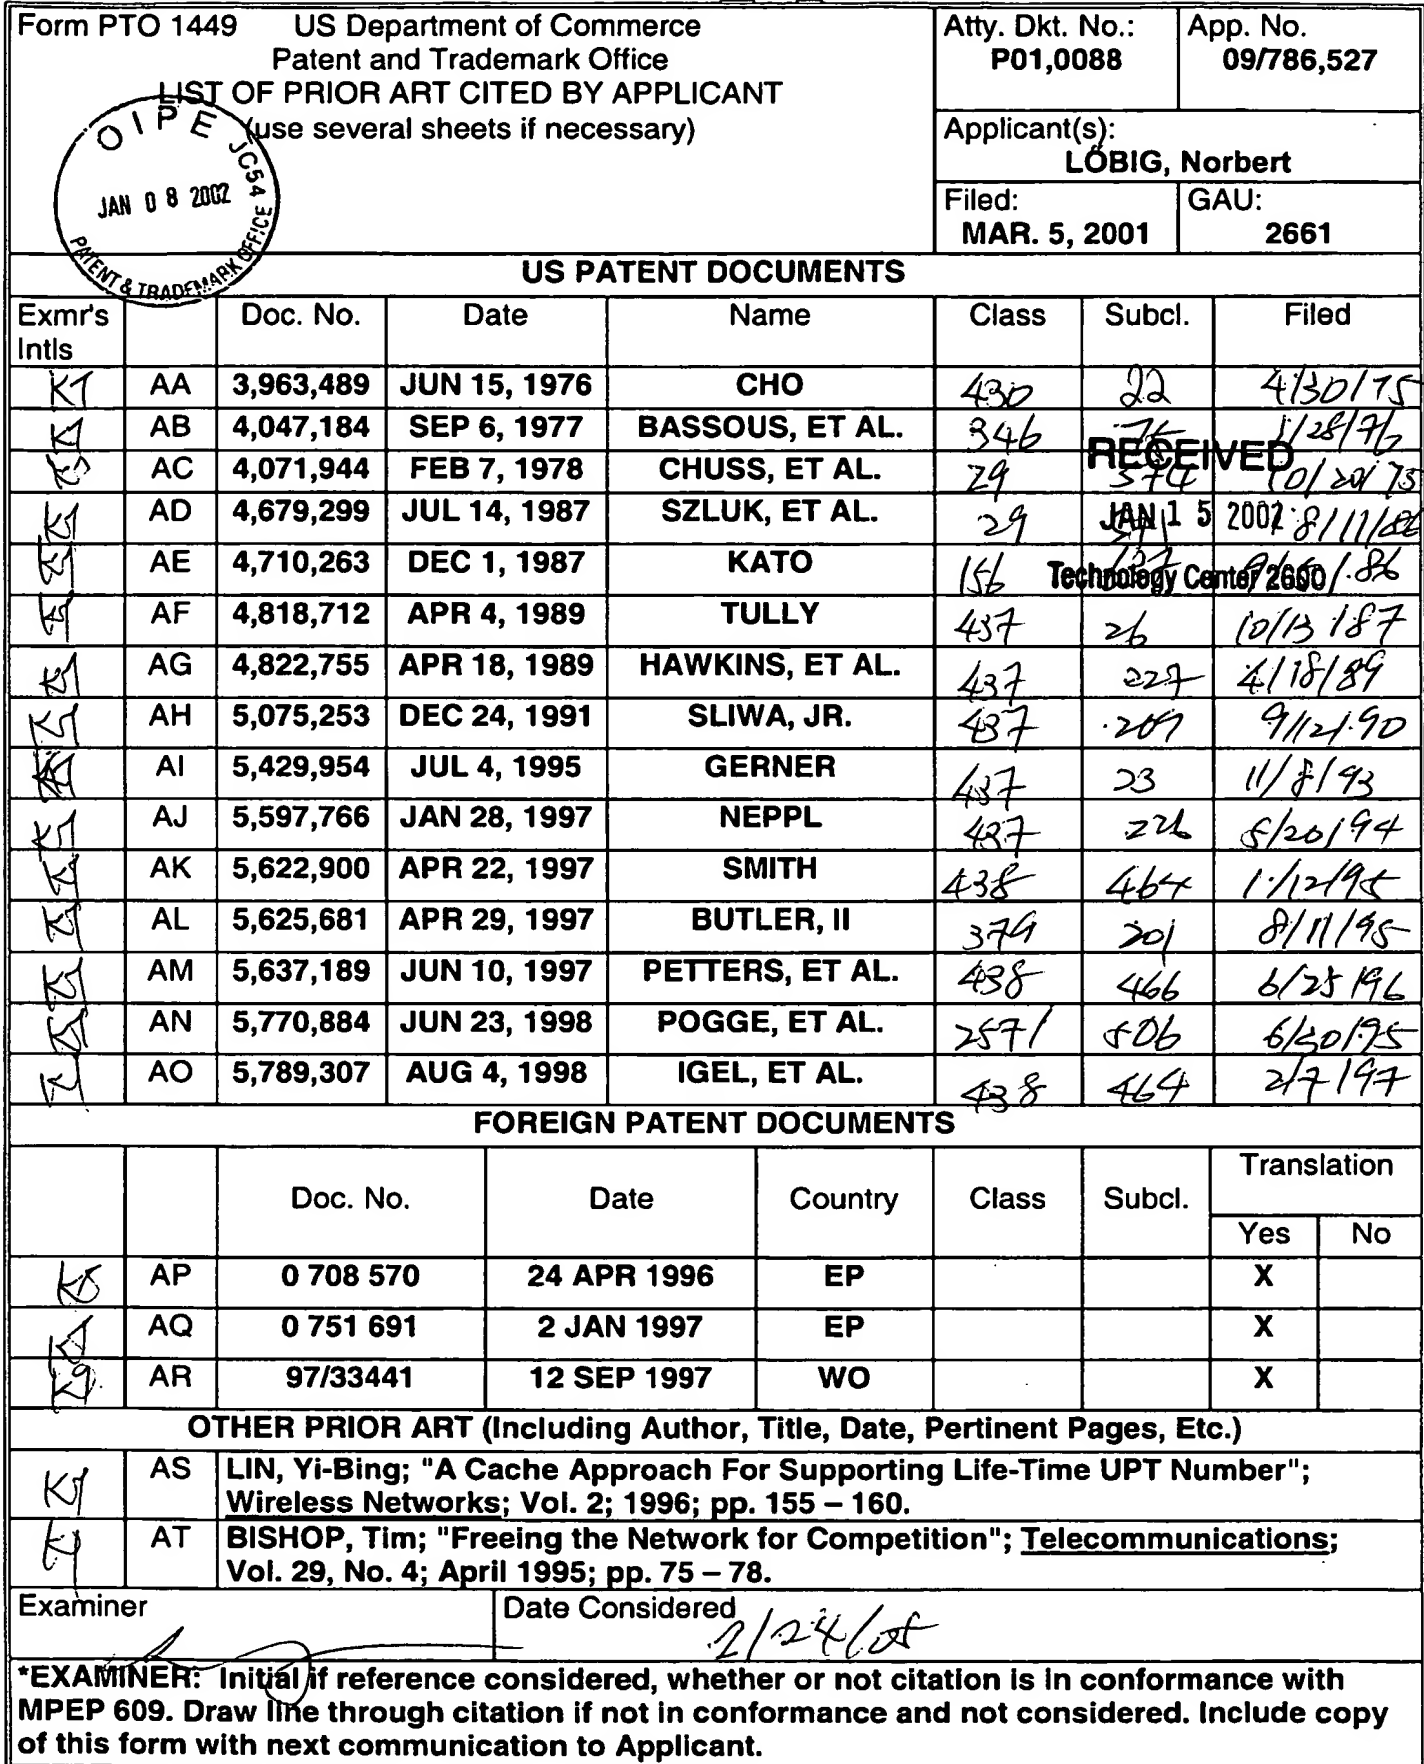 Form PTO 1449 US Department of Commerce
Patent and Trademark Office
LIST OF PRIOR ART CITED BY APPLICANT
(use several sheets if necessary)
OIPE JC54
JAN 08 2002
PATENT & TRADEMARK OFFICE
Atty. Dkt. No.:
P01,0088
App. No.
09/786,527
Applicant(s):
LÖBIG, Norbert
Filed:
MAR. 5, 2001
GAU:
2661
US PATENT DOCUMENTS
Exmr's Intls Doc. No. Date Name Class Subcl. Filed
AA 3,963,489 JUN 15, 1976 CHO 430 22 4/30/75
AB 4,047,184 SEP 6, 1977 BASSOUS, ET AL. 346 1/28/76
AC 4,071,944 FEB 7, 1978 CHUSS, ET AL. 29 574 10/20/75
RECEIVED
AD 4,679,299 JUL 14, 1987 SZLUK, ET AL. 29 8/11/86
JAN 15 2002
AE 4,710,263 DEC 1, 1987 KATO 156
Technology Center 2600
AF 4,818,712 APR 4, 1989 TULLY 437 26 10/13/87
AG 4,822,755 APR 18, 1989 HAWKINS, ET AL. 437 227 4/18/89
AH 5,075,253 DEC 24, 1991 SLIWA, JR. 437 209 9/12/90
AI 5,429,954 JUL 4, 1995 GERNER 437 23 11/8/93
AJ 5,597,766 JAN 28, 1997 NEPPL 437 226 5/20/94
AK 5,622,900 APR 22, 1997 SMITH 438 464 1/12/95
AL 5,625,681 APR 29, 1997 BUTLER, II 379 201 8/11/95
AM 5,637,189 JUN 10, 1997 PETTERS, ET AL. 438 466 6/25/96
AN 5,770,884 JUN 23, 1998 POGGE, ET AL. 257 506 6/30/95
AO 5,789,307 AUG 4, 1998 IGEL, ET AL. 438 464 2/7/97
FOREIGN PATENT DOCUMENTS
Doc. No. Date Country Class Subcl. Translation
Yes No
AP 0 708 570 24 APR 1996 EP X
AQ 0 751 691 2 JAN 1997 EP X
AR 97/33441 12 SEP 1997 WO X
OTHER PRIOR ART (Including Author, Title, Date, Pertinent Pages, Etc.)
AS LIN, Yi-Bing; "A Cache Approach For Supporting Life-Time UPT Number";
Wireless Networks; Vol. 2; 1996; pp. 155 – 160.
AT BISHOP, Tim; "Freeing the Network for Competition"; Telecommunications;
Vol. 29, No. 4; April 1995; pp. 75 – 78.
Examiner Date Considered 2/24/05
*EXAMINER: Initial if reference considered, whether or not citation is in conformance with
MPEP 609. Draw line through citation if not in conformance and not considered. Include copy
of this form with next communication to Applicant.